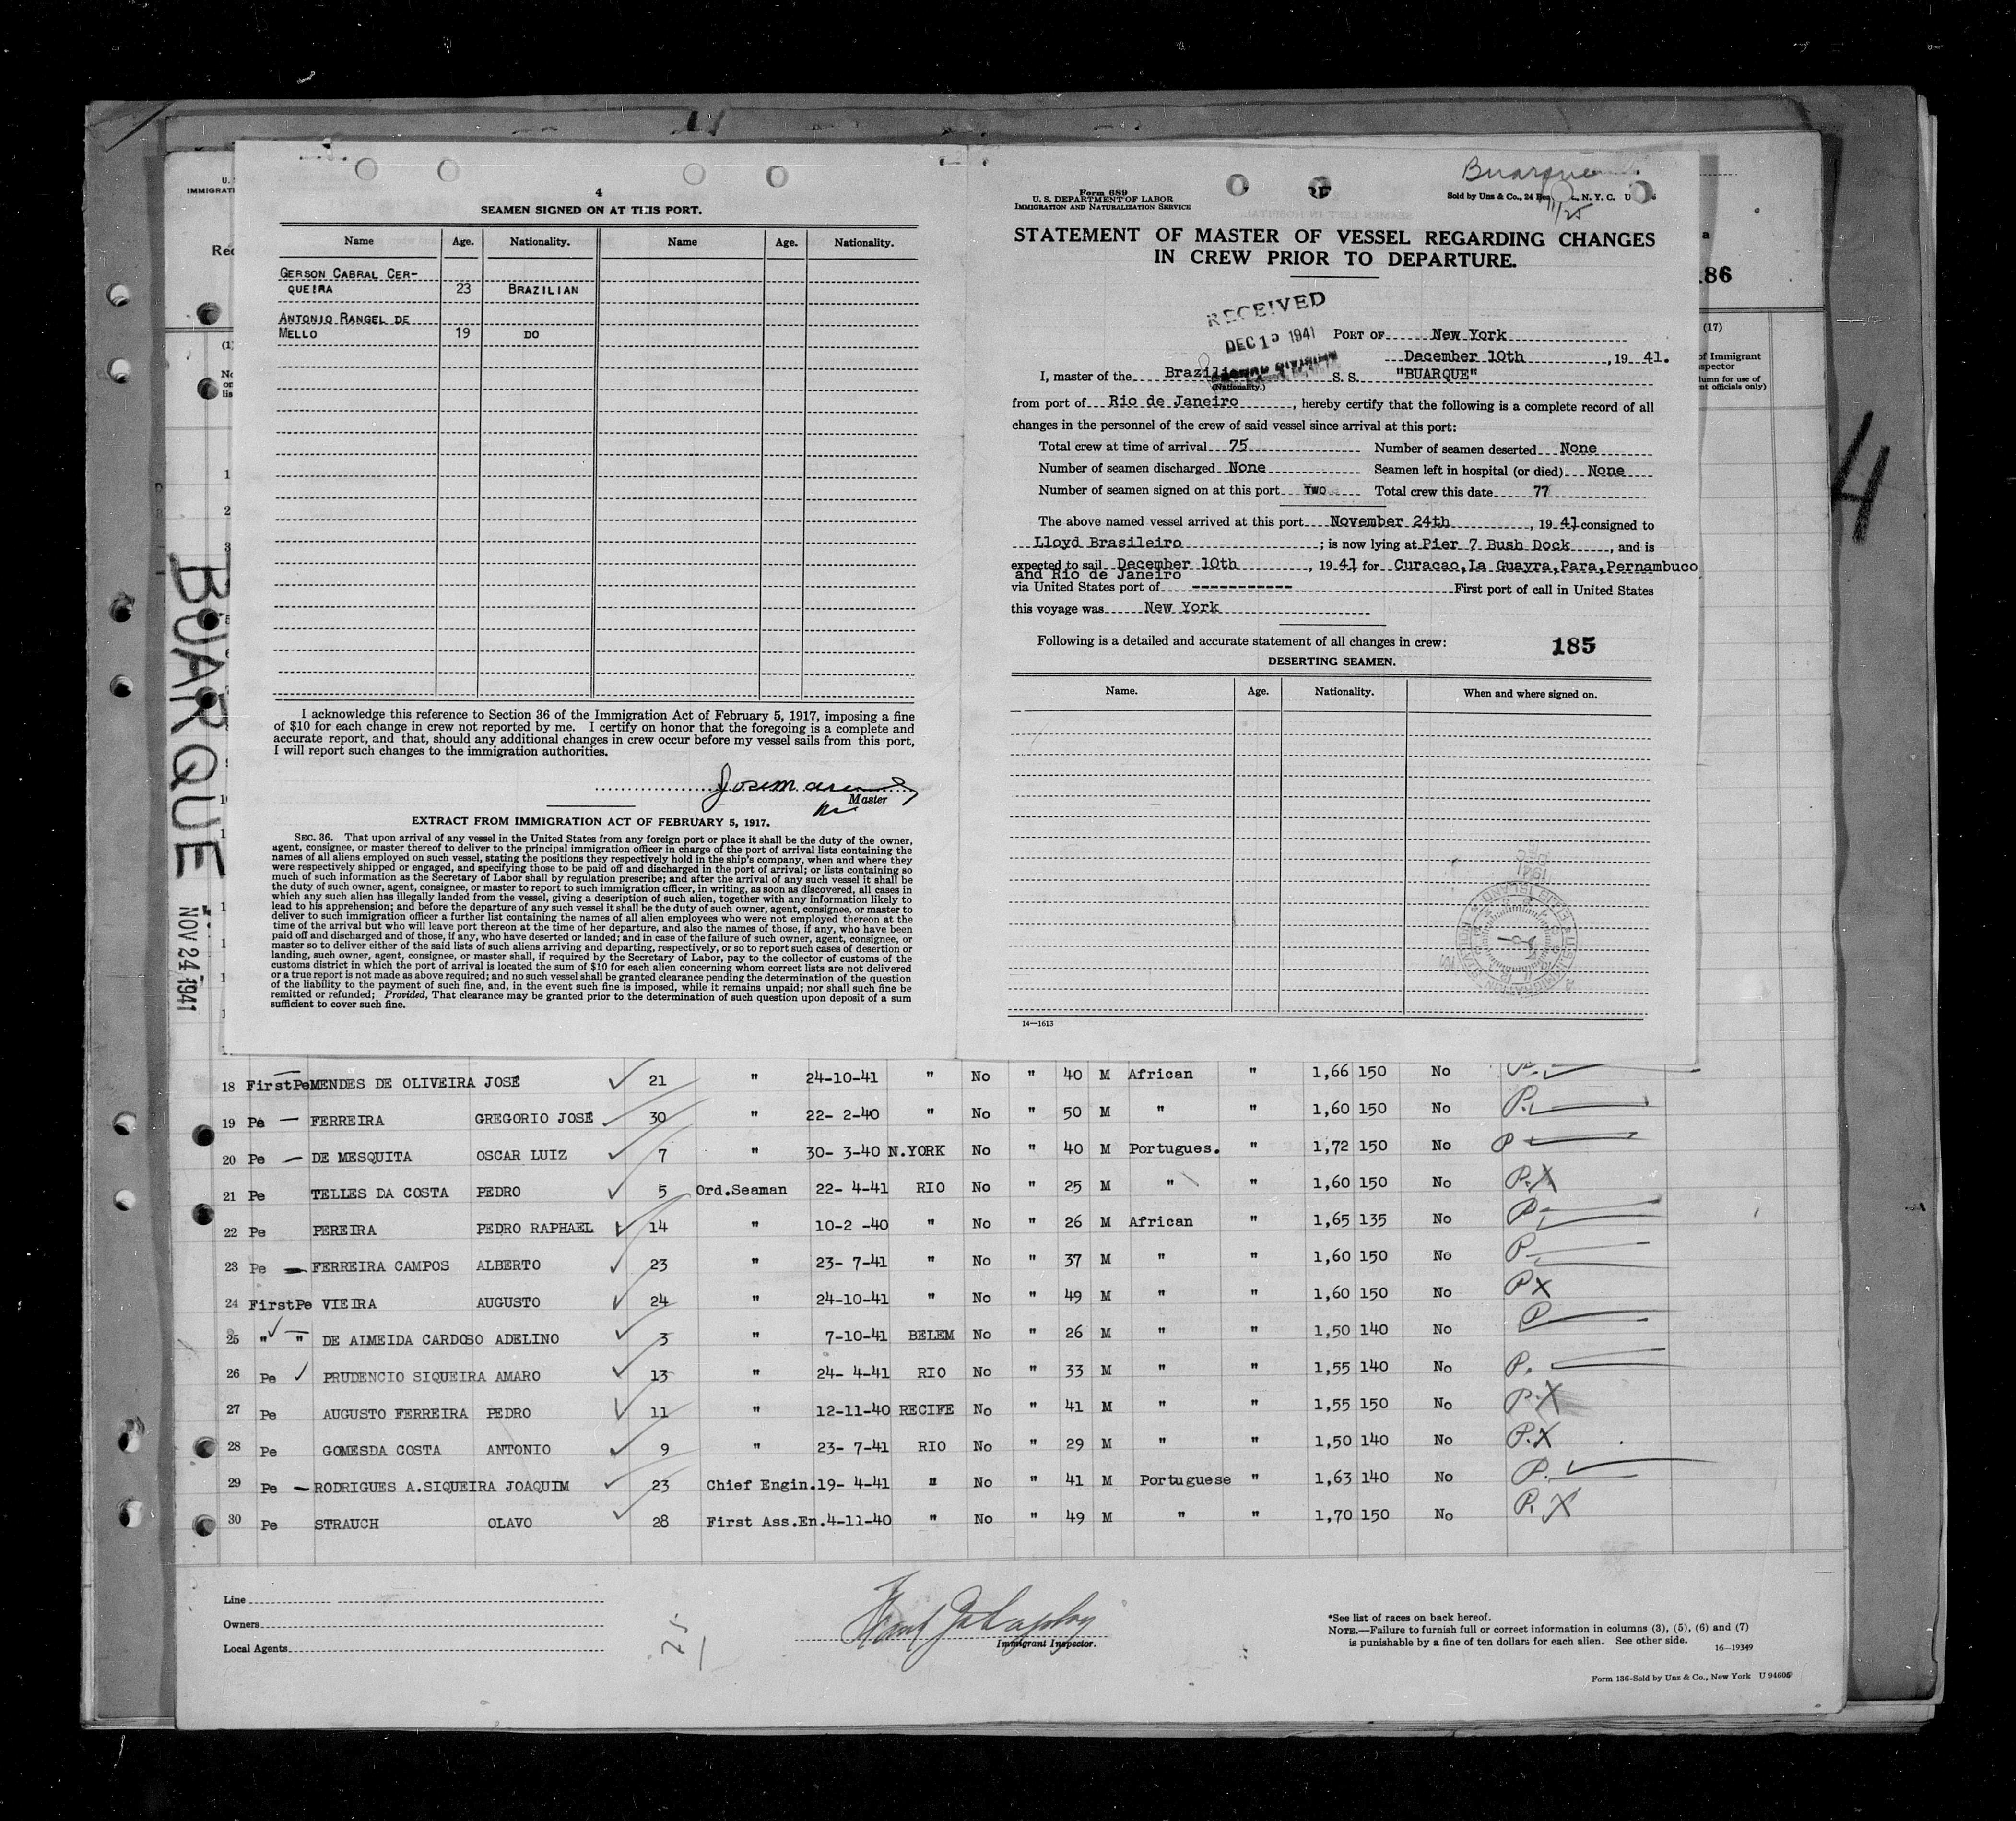 4
SEAMEN SIGNED ON AT THIS PORT.
Name Age. Nationality. Name Age. Nationality.
GERSON CABRAL CER-
QUEIRA 23 BRAZILIAN
ANTONIO RANGEL DE
MELLO 19 DO
I acknowledge this reference to Section 36 of the Immigration Act of February 5, 1917, imposing a fine
of $10 for each change in crew not reported by me. I certify on honor that the foregoing is a complete and
accurate report, and that, should any additional changes in crew occur before my vessel sails from this port,
I will report such changes to the immigration authorities.
Master
EXTRACT FROM IMMIGRATION ACT OF FEBRUARY 5, 1917.
SEC. 36. That upon arrival of any vessel in the United States from any foreign port or place it shall be the duty of the owner,
agent, consignee, or master thereof to deliver to the principal immigration officer in charge of the port of arrival lists containing the
names of all aliens employed on such vessel, stating the positions they respectively hold in the ship's company, when and where they
were respectively shipped or engaged, and specifying those to be paid off and discharged in the port of arrival; or lists containing so
much of such information as the Secretary of Labor shall by regulation prescribe; and after the arrival of any such vessel it shall be
the duty of such owner, agent, consignee, or master to report to such immigration officer, in writing, as soon as discovered, all cases in
which any such alien has illegally landed from the vessel, giving a description of such alien, together with any information likely to
lead to his apprehension; and before the departure of any such vessel it shall be the duty of such owner, agent, consignee, or master to
deliver to such immigration officer a further list containing the names of all alien employees who were not employed thereon at the
time of the arrival but who will leave port thereon at the time of her departure, and also the names of those, if any, who have been
paid off and discharged and of those, if any, who have deserted or landed; and in case of the failure of such owner, agent, consignee, or
master so to deliver either of the said lists of such aliens arriving and departing, respectively, or so to report such cases of desertion or
landing, such owner, agent, consignee, or master shall, if required by the Secretary of Labor, pay to the collector of customs of the
customs district in which the port of arrival is located the sum of $10 for each alien concerning whom correct lists are not delivered
or a true report is not made as above required; and no such vessel shall be granted clearance pending the determination of the question
of the liability to the payment of such fine, and, in the event such fine is imposed, while it remains unpaid; nor shall such fine be
remitted or refunded; Provided, That clearance may be granted prior to the determination of such question upon deposit of a sum
sufficient to cover such fine.
Buarque
11/25
Form 689
U. S. DEPARTMENT OF LABOR
IMMIGRATION AND NATURALIZATION SERVICE
Sold by Unz & Co., 24 N. Y. C.
STATEMENT OF MASTER OF VESSEL REGARDING CHANGES
IN CREW PRIOR TO DEPARTURE.
RECEIVED
DEC 15 1941
PORT OF New York
December 10th, 19 41.
I, master of the Brazilian S. S. "BUARQUE"
(Nationality.)
from port of Rio de Janeiro, hereby certify that the following is a complete record of all
changes in the personnel of the crew of said vessel since arrival at this port:
Total crew at time of arrival 75 Number of seamen deserted None
Number of seamen discharged None Seamen left in hospital (or died) None
Number of seamen signed on at this port TWO Total crew this date 77
The above named vessel arrived at this port November 24th, 19 41 consigned to
Lloyd Brasileiro; is now lying at Pier 7 Bush Dock, and is
expected to sail December 10th, 19 41 for Curacao, La Guayra, Para, Pernambuco
and Rio de Janeiro
via United States port of ----------- First port of call in United States
this voyage was New York
Following is a detailed and accurate statement of all changes in crew: 185
DESERTING SEAMEN.
Name. Age. Nationality. When and where signed on.
14—1613
BUARQUE
NOV 24 1941
4
86
(17)
18 FirstPe MENDES DE OLIVEIRA JOSÉ 21 " 24-10-41 " No " 40 M African " 1,66 150 No
19 Pe — FERREIRA GREGORIO JOSÉ 30 " 22- 2-40 " No " 50 M " " 1,60 150 No P.
20 Pe — DE MESQUITA OSCAR LUIZ 7 " 30- 3-40 N.YORK No " 40 M Portugues. " 1,72 150 No P
21 Pe TELLES DA COSTA PEDRO 5 Ord.Seaman 22- 4-41 RIO No " 25 M " " 1,60 150 No P.X
22 Pe PEREIRA PEDRO RAPHAEL 14 " 10-2 -40 " No " 26 M African " 1,65 135 No P
23 Pe — FERREIRA CAMPOS ALBERTO 23 " 23- 7-41 " No " 37 M " " 1,60 150 No P
24 FirstPe VIEIRA AUGUSTO 24 " 24-10-41 " No " 49 M " " 1,60 150 No PX
25 " " DE ALMEIDA CARDOSO ADELINO 3 " 7-10-41 BELEM No " 26 M " " 1,50 140 No P
26 Pe PRUDENCIO SIQUEIRA AMARO 13 " 24- 4-41 RIO No " 33 M " " 1,55 140 No P.
27 Pe AUGUSTO FERREIRA PEDRO 11 " 12-11-40 RECIFE No " 41 M " " 1,55 150 No P.X
28 Pe GOMESDA COSTA ANTONIO 9 " 23- 7-41 RIO No " 29 M " " 1,50 140 No P.X
29 Pe — RODRIGUES A.SIQUEIRA JOAQUIM 23 Chief Engin. 19- 4-41 " No " 41 M Portuguese " 1,63 140 No P.
30 Pe STRAUCH OLAVO 28 First Ass.En. 4-11-40 " No " 49 M " " 1,70 150 No P. X
Line
Owners
Local Agents
Immigrant Inspector.
*See list of races on back hereof.
NOTE.—Failure to furnish full or correct information in columns (3), (5), (6) and (7)
is punishable by a fine of ten dollars for each alien. See other side.
16—19349
Form 136-Sold by Unz & Co., New York U 94605